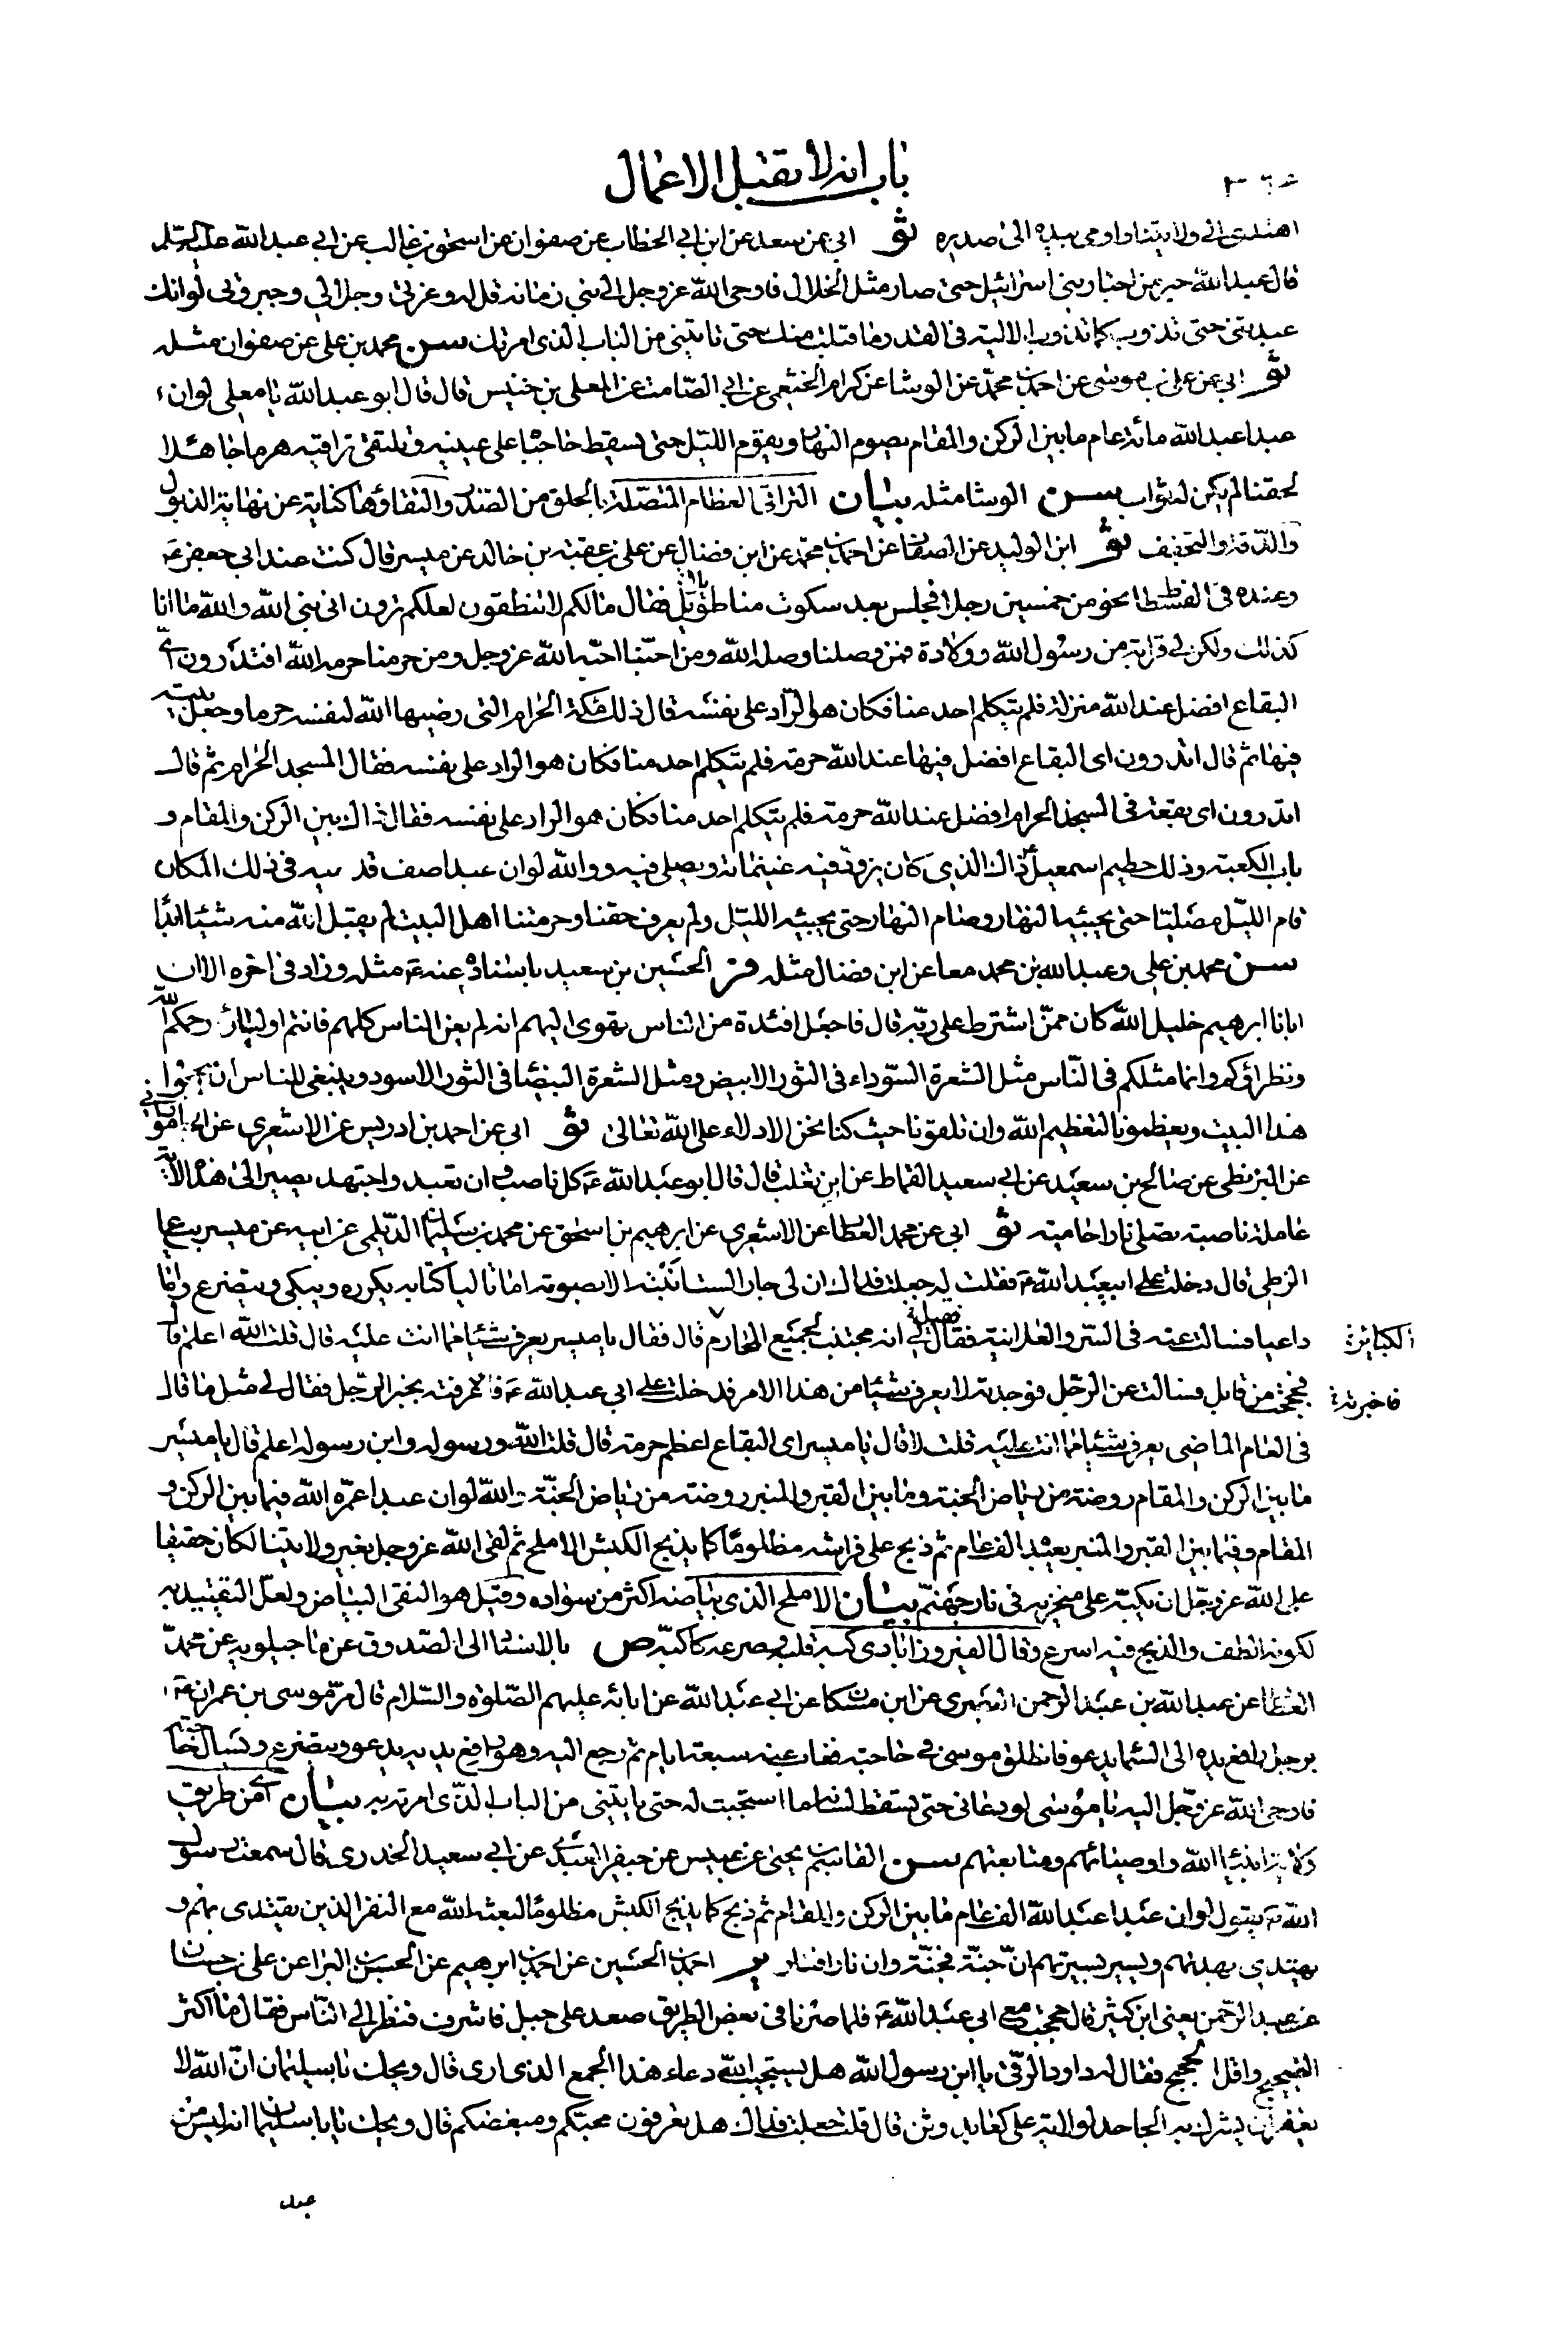 باب انه لا تقبل الاعمال
اهتدى الى ولايتنا واومى بيده الى صدره ثو ابى عن سعد عن ابن ابى الخطاب عن صفوان عن اسحق بن غالب عن ابى عبد الله عليه السلم
قال عبد الله حبر من احبار بنى اسرائيل حتى صار مثل الخلال فاوحى الله عز وجل الى نبى زمانه قل له وعزتى وجلالى وجبروتى لو انك
عبدتنى حتى تذوب كما تذوب الالية فى القدر ما قبلت منك حتى تاتينى من الباب الذى امرتك سن محمد بن على عن صفوان مثله
ثو ابى عن على بن موسى عن احمد بن محمد عن الوشا عن كرام الخثعمى عن ابى الصامت عن المعلى بن خنيس قال قال ابو عبد الله يا معلى لو ان
عبدا عبد الله مائة عام ما بين الركن والمقام يصوم النهار ويقوم الليل حتى يسقط حاجباه على عينيه ويلتقى تراقيه هرما جاهلا
لحقنا لم يكن له ثواب سن الوشا مثله بيان التراقى العظام المتصلة بالحلق من الصدر والتقاؤها كناية عن نهاية الذبول
والدقة والتجفيف ثو ابن الوليد عن الصفار عن احمد بن محمد عن ابن فضال عن على بن عقبة بن خالد عن ميسر قال كنت عند ابى جعفر ع
وعنده فى الفسطاط نحو من خمسين رجلا فجلس بعد سكوت منا طويل فقال ما لكم لا تنطقون لعلكم ترون انى نبى الله والله ما انا
كذلك ولكن لى قرابة من رسول الله وولادة فمن وصلنا وصله الله ومن احبنا احبه الله عز وجل ومن حرمنا حرمه الله افتدرون اى
البقاع افضل عند الله منزلة فلم يتكلم احد منا فكان هو الراد على نفسه قال ذلك مكة الحرام التى رضيها الله لنفسه حرما وجعل بيته
فيها ثم قال اتدرون اى البقاع افضل فيها عند الله حرمة فلم يتكلم احد منا فكان هو الراد على نفسه فقال المسجد الحرام ثم قال
اتدرون اى بقعة فى المسجد الحرام افضل عند الله حرمة فلم يتكلم احد منا فكان هو الراد على نفسه فقال ذاك بين الركن والمقام و
باب الكعبة وذلك حطيم اسمعيل ذاك الذى كان يزود فيه غنيماته ويصلى فيه ووالله لو ان عبدا صف قدميه فى ذلك المكان
قام الليل مصليا حتى يجيئه النهار وصام النهار حتى يجيئه الليل ولم يعرف حقنا وحرمتنا اهل البيت لم يقبل الله منه شيئا ابدا
سن محمد بن على وعبد الله بن محمد معا عن ابن فضال مثله فر الحسين بن سعيد باسناده عنه ع مثله وزاد فى اخره الا ان
ابانا ابرهيم خليل الله كان ممن اشترط على ربه قال فاجعل افئدة من الناس تهوى اليهم انه لم يعن الناس كلهم فانتم اولئك رحمكم الله
ونظراؤكم وانما مثلكم فى الناس مثل الشعرة السوداء فى الثور الابيض ومثل الشعرة البيضا فى الثور الاسود وينبغى للناس ان يحجوا
هذا البيت ويعظموه لتعظيم الله وان تلقونا حيث كنا نحن الادلاء على الله تعالى ثو ابى عن احمد بن ادريس عن الاشعرى عن الجامورانى
عن البزنطى عن صالح بن سعيد عن ابى سعيد القماط عن ابن تغلب قال قال ابو عبد الله ع كل ناصب وان تعبد واجتهد يصير الى هذه الاية
عاملة ناصبة تصلى نارا حامية ثو ابى عن محمد العطار عن الاشعرى عن ابرهيم بن اسحق عن محمد بن سليمان الديلمى عن ابيه عن ميسر بياع
الزطى قال دخلت على ابيعبد الله ع فقلت له جعلت فداك ان لى جار الست انتبه الا بصوته اما تاليا كتابه يكرره ويبكى ويتضرع واما
داعيا فسالت عنه فى السر والعلانية فقيل لى انه مجتنب لجميع المحارم قال فقال يا ميسر يعرف شيئا مما انت عليه قال قلت الله اعلم قال
الكبائر
فحججت من قابل فسالت عن الرجل فوجدته لا يعرف شيئا من هذا الامر فدخلت على ابى عبد الله ع فاخبرته بخبر الرجل فقال لى مثل ما قال
فاخبرته
فى العام الماضى يعرف شيئا مما انت عليه قلت لا قال يا ميسر اى البقاع اعظم حرمة قال قلت الله ورسوله وابن رسوله اعلم قال يا ميسر
ما بين الركن والمقام روضة من رياض الجنة وما بين القبر والمنبر روضة من رياض الجنة والله لو ان عبدا عمره الله فيما بين الركن و
المقام وفيما بين القبر والمنبر يعبده الف عام ثم ذبح على فراشه مظلوما كما يذبح الكبش الاملح ثم لقى الله عز وجل بغير ولايتنا لكان حقيقا
على الله عز وجل ان يكبه على منخريه فى نار جهنم بيان الاملح الذى بياضه اكثر من سواده وقيل هو النقى البياض ولعل التقييد به
لكونه الطف والذبح فيه اسرع وقال الفيروزابادى كبه قلبه وصرعه كاكبه ص بالاسناد الى الصدوق عن ماجيلويه عن محمد
العطار عن عبد الله بن عبد الرحمن البصرى عن ابن مسكان عن ابى عبد الله عن ابائه عليهم الصلوة والسلام قال مر موسى بن عمران ع
برجل رافع يده الى السماء يدعو فانطلق موسى فى حاجته فغاب عنه سبعة ايام ثم رجع اليه وهو رافع يديه يدعو ويتضرع ويسال حاجته
فاوحى الله عز وجل اليه يا موسى لو دعانى حتى يسقط لسانه ما استجبت له حتى ياتينى من الباب الذى امرته به بيان اى من طريق
ولاية انبياء الله واوصيائهم ومتابعتهم سن القاسم بن يحيى عن عبيس عن جيفر العبدى عن ابى سعيد الخدرى قال سمعت رسول
الله ص يقول لو ان عبدا عبد الله الف عام ما بين الركن والمقام ثم ذبح كما يذبح الكبش مظلوما لبعثه الله مع النفر الذين يقتدى بهم و
يهتدى بهديهم ويسير بسيرتهم ان جنة فجنة وان نارا فنار ير احمد بن الحسين عن احمد بن ابرهيم عن الحسن بن البرا عن على بن حسان
عن عبد الرحمن يعنى ابن كثير قال حججت مع ابى عبد الله ع فلما صرنا فى بعض الطريق صعد على جبل فاشرف فنظر الى الناس فقال ما اكثر
الضجيج واقل الحجيج فقال له داود الرقى يا ابن رسول الله هل يستجيب الله دعاء هذا الجمع الذى ارى قال ويحك يا با سليمان ان الله لا
يغفر ان يشرك به الجاحد لولاية على كعابد وثن قال قلت جعلت فداك هل تعرفون محبكم ومبغضكم قال ويحك يا با سليمان انه ليس من
عبد